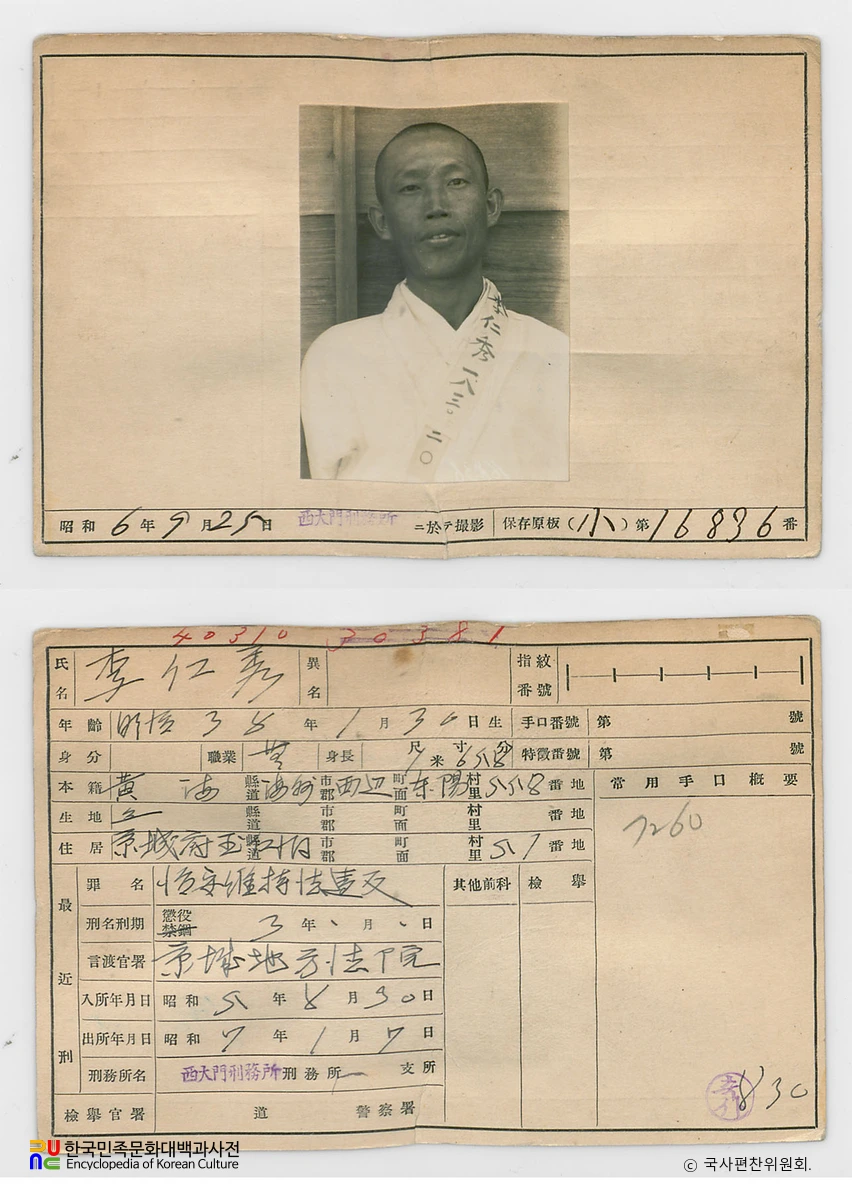 李仁秀 一八三〇 二〇
昭和 6年 9月 25日 西大門刑務所 ニ於テ撮影 保存原板(小)第 16836 番
40310 30381
氏名 李仁秀 異名 指紋番號
年齡 明治 38年 1月 30日生 手口番號 第 號
身分 職業 無 身長 尺 寸 分 1米 658 特徵番號 第 號
本籍 黃海 縣道 海州 市郡 西辺 町面 东陽 村里 558 番地 常用手口概要
生地 仝 縣道 市郡 町面 村里 番地 7260
住居 京城府玉 縣道 市郡 町面 村里 51 番地
最近刑 罪名 治安維持法違反 其他前科 檢擧
刑名刑期 懲役 禁錮 3年 、月 、日
言渡官署 京城地方法院
入所年月日 昭和 5年 8月 30日
出所年月日 昭和 7年 1月 7日
刑務所名 西大門刑務所 刑務所 支所
830
檢擧官署 道 警察署
한국민족문화대백과사전
Encyclopedia of Korean Culture
© 국사편찬위원회.